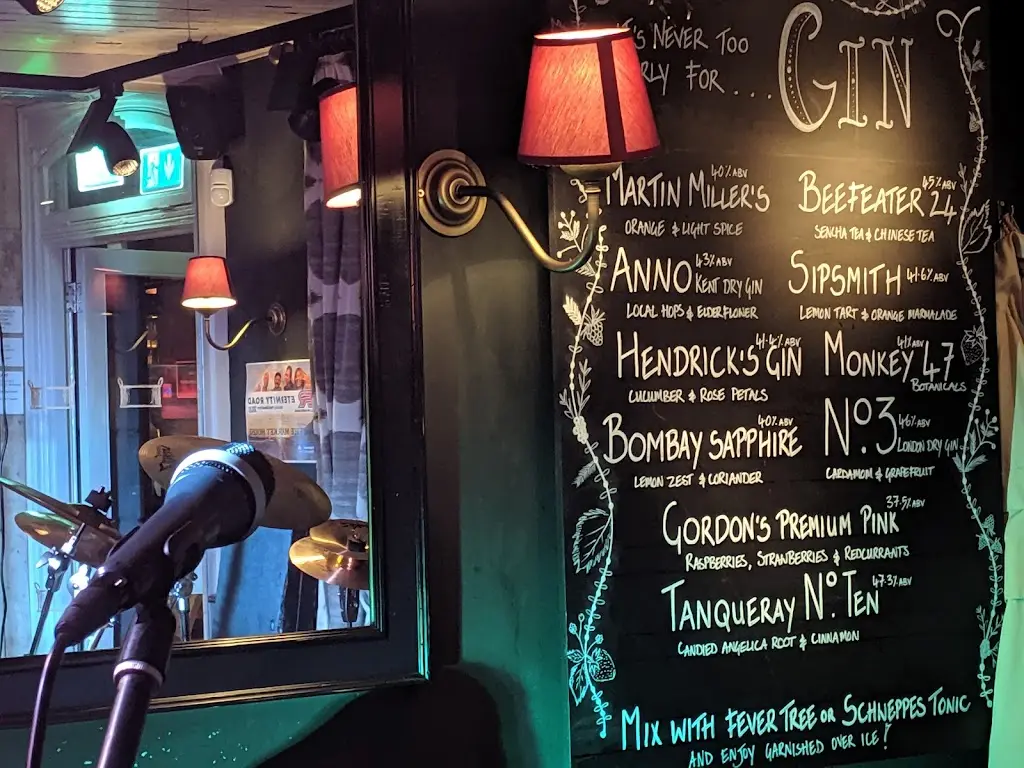 'S NEVER TOO
RLY FOR . . . GIN
MARTIN MILLER'S 40% ABV
ORANGE & LIGHT SPICE
BEEFEATER 24 45% ABV
SENCHA TEA & CHINESE TEA
ANNO 43% ABV KENT DRY GIN
LOCAL HOPS & ELDERFLOWER
SIPSMITH 41.6% ABV
LEMON TART & ORANGE MARMALADE
HENDRICK'S GIN 41.4% ABV
CUCUMBER & ROSE PETALS
MONKEY 47 41% ABV
BOTANICALS
BOMBAY SAPPHIRE 40% ABV
LEMON ZEST & CORIANDER
No. 3 46% ABV LONDON DRY GIN
CARDAMOM & GRAPEFRUIT
GORDON'S PREMIUM PINK 37.5% ABV
RASPBERRIES, STRAWBERRIES & REDCURRANTS
TANQUERAY No. TEN 47.3% ABV
CANDIED ANGELICA ROOT & CINNAMON
MIX WITH FEVER TREE OR SCHNEPPES TONIC
AND ENJOY GARNISHED OVER ICE!
ETERNITY ROAD